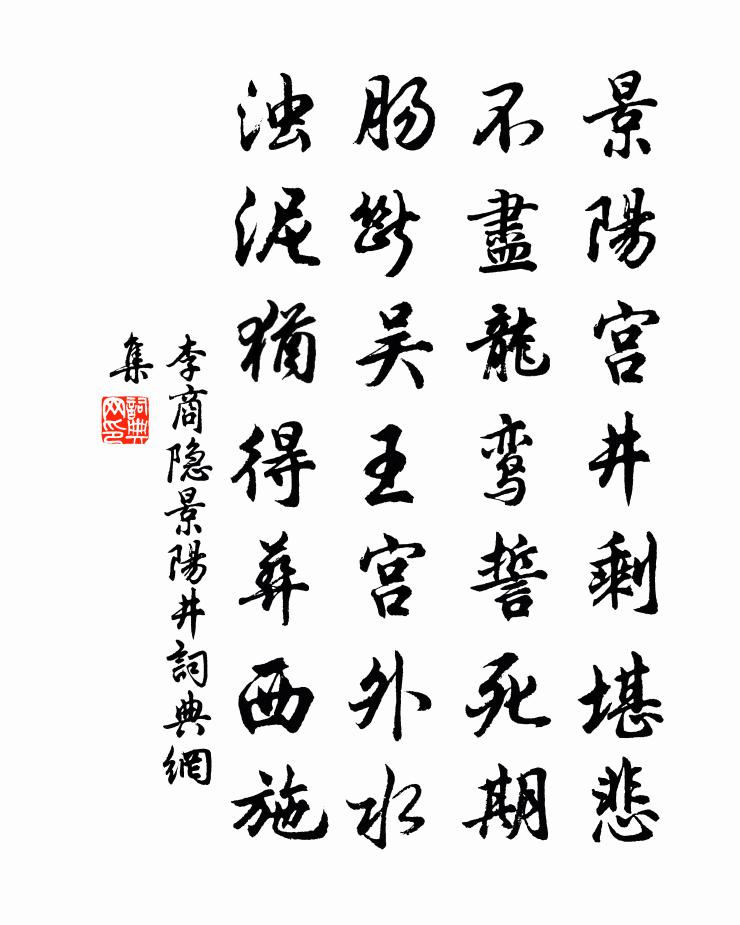 景陽宫井剩堪悲
不盡龍鸾誓死期
肠斷吴王宫外水
浊泥猶得葬西施
李商隐景陽井詞典網
集
詞典
网印